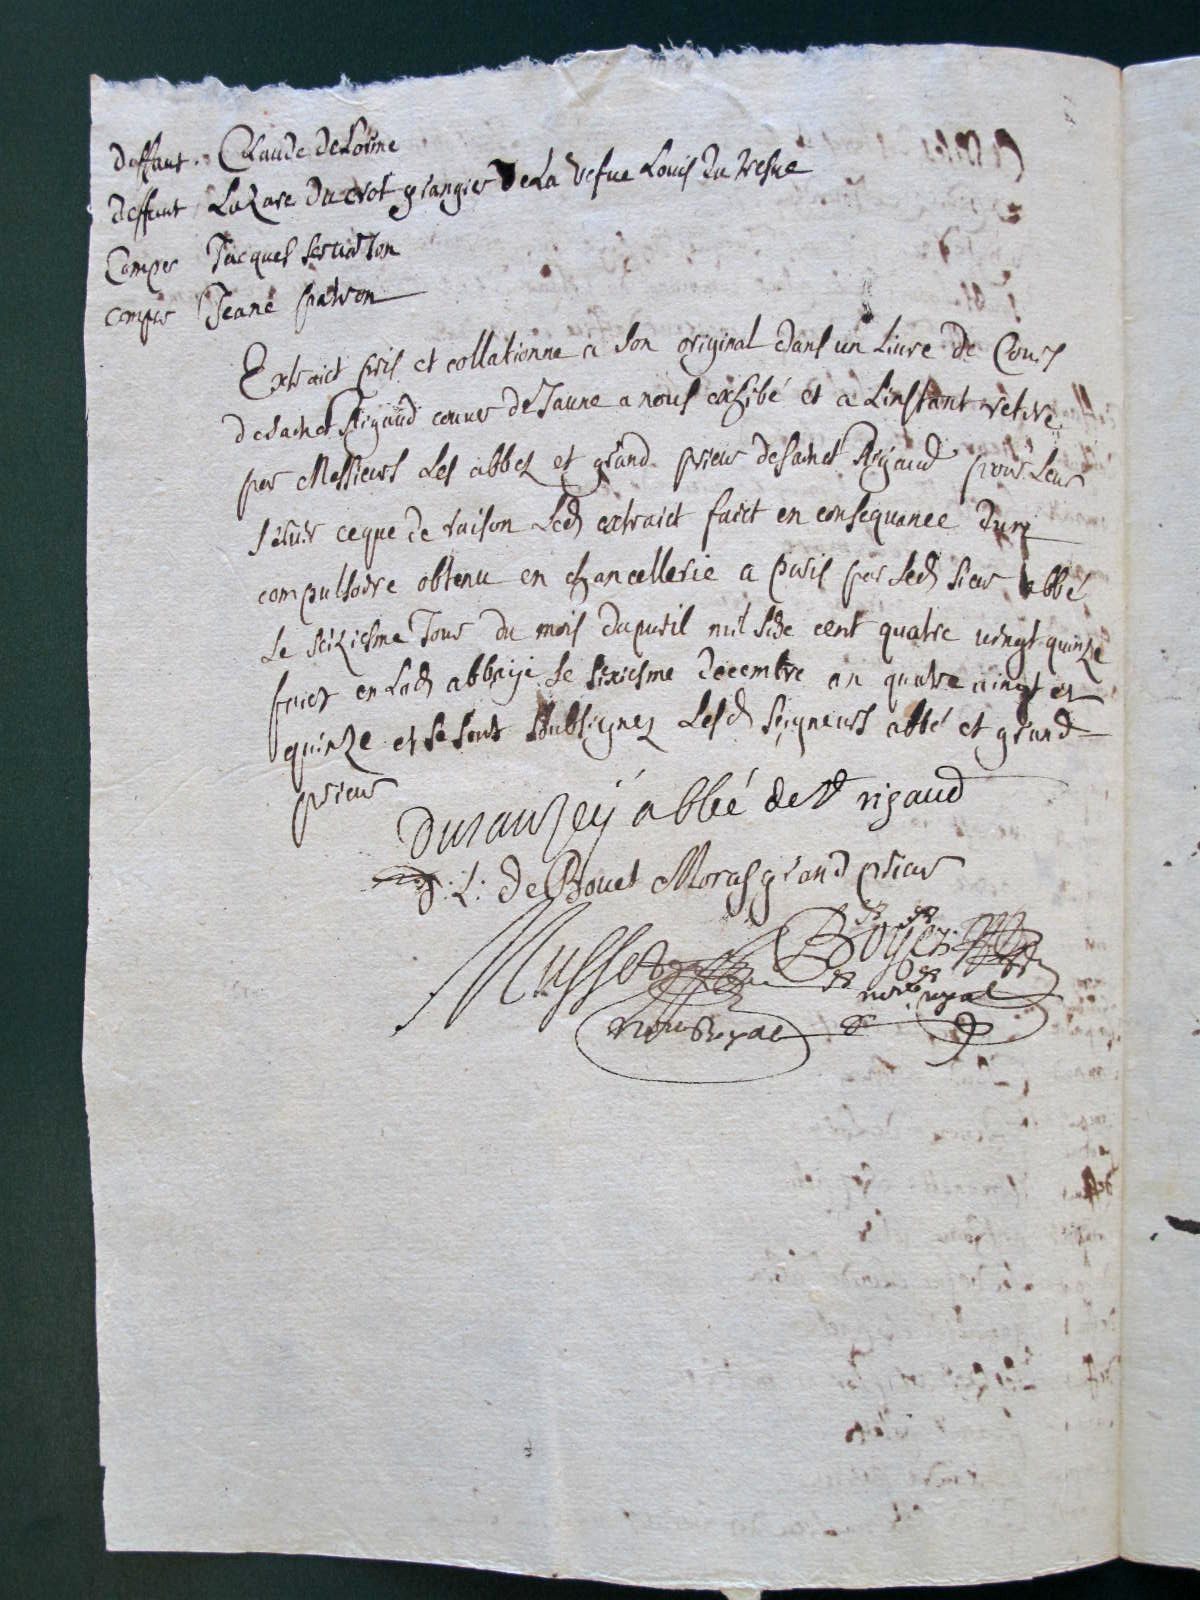 deffaut. Claude delorme
deffaut Lazare Ducrot grangier de la vefue Louis du tresne
Compar Jacques
compar Jeane patron
Extraict pris et collationne a son original dans un Liure de Cours
de sainct Rigaud couuer de Jaune a nous exhibé et a Linstant retiré
par Messieurs Les abbez et grand prieur de sainct Rigaud pour Leur
seruir ce que de raison Led extraict faict en consequance dun
compulsoire obtenu en chancellerie a paris par led sieur abbé
Le seiziesme Jour du mois dapuril mil size cent quatre uingt quinze
faict en Lad abbaije le sixiesme decembre an quatre uingt et
quinze et se sont soubsignez Lesd seigneurs abbé et grand
prieur
Durauzey abbé de St rigaud
L: de Bouet Moras grand prieur
Musset Boyer
nore royal
nore Royal